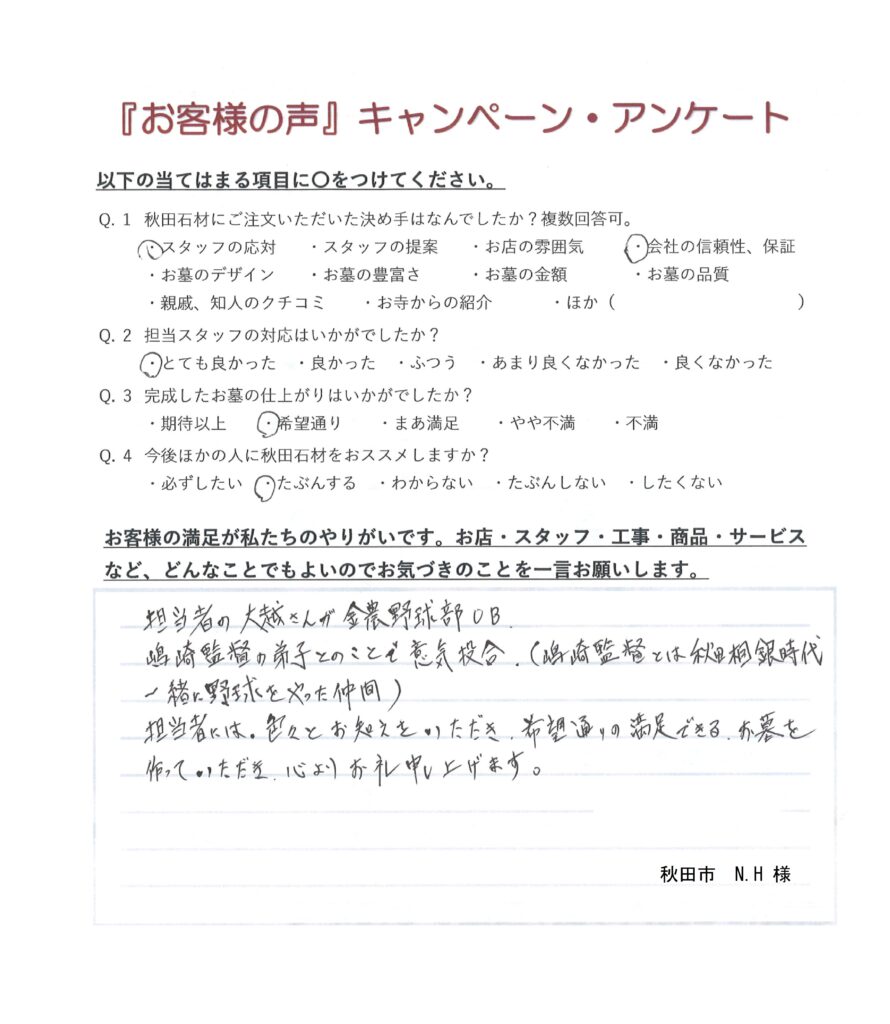 『お客様の声』キャンペーン・アンケート
以下の当てはまる項目に〇をつけてください。
Q. 1 秋田石材にご注文いただいた決め手はなんでしたか？複数回答可。
・スタッフの応対 ・スタッフの提案 ・お店の雰囲気 ・会社の信頼性、保証
・お墓のデザイン ・お墓の豊富さ ・お墓の金額 ・お墓の品質
・親戚、知人のクチコミ ・お寺からの紹介 ・ほか（ ）
Q. 2 担当スタッフの対応はいかがでしたか？
・とても良かった ・良かった ・ふつう ・あまり良くなかった ・良くなかった
Q. 3 完成したお墓の仕上がりはいかがでしたか？
・期待以上 ・希望通り ・まあ満足 ・やや不満 ・不満
Q. 4 今後ほかの人に秋田石材をおススメしますか？
・必ずしたい ・たぶんする ・わからない ・たぶんしない ・したくない
お客様の満足が私たちのやりがいです。お店・スタッフ・工事・商品・サービス
など、どんなことでもよいのでお気づきのことを一言お願いします。
担当者の大越さんが金農野球部OB.
嶋崎監督の弟子とのことで意気投合.（嶋崎監督とは秋田相銀時代
一緒に野球をやった仲間）
担当者には。色々とお知えをいただき.希望通りの満足できる.お墓を
作っていただき.心よりお礼申し上げます。
秋田市 N.H 様